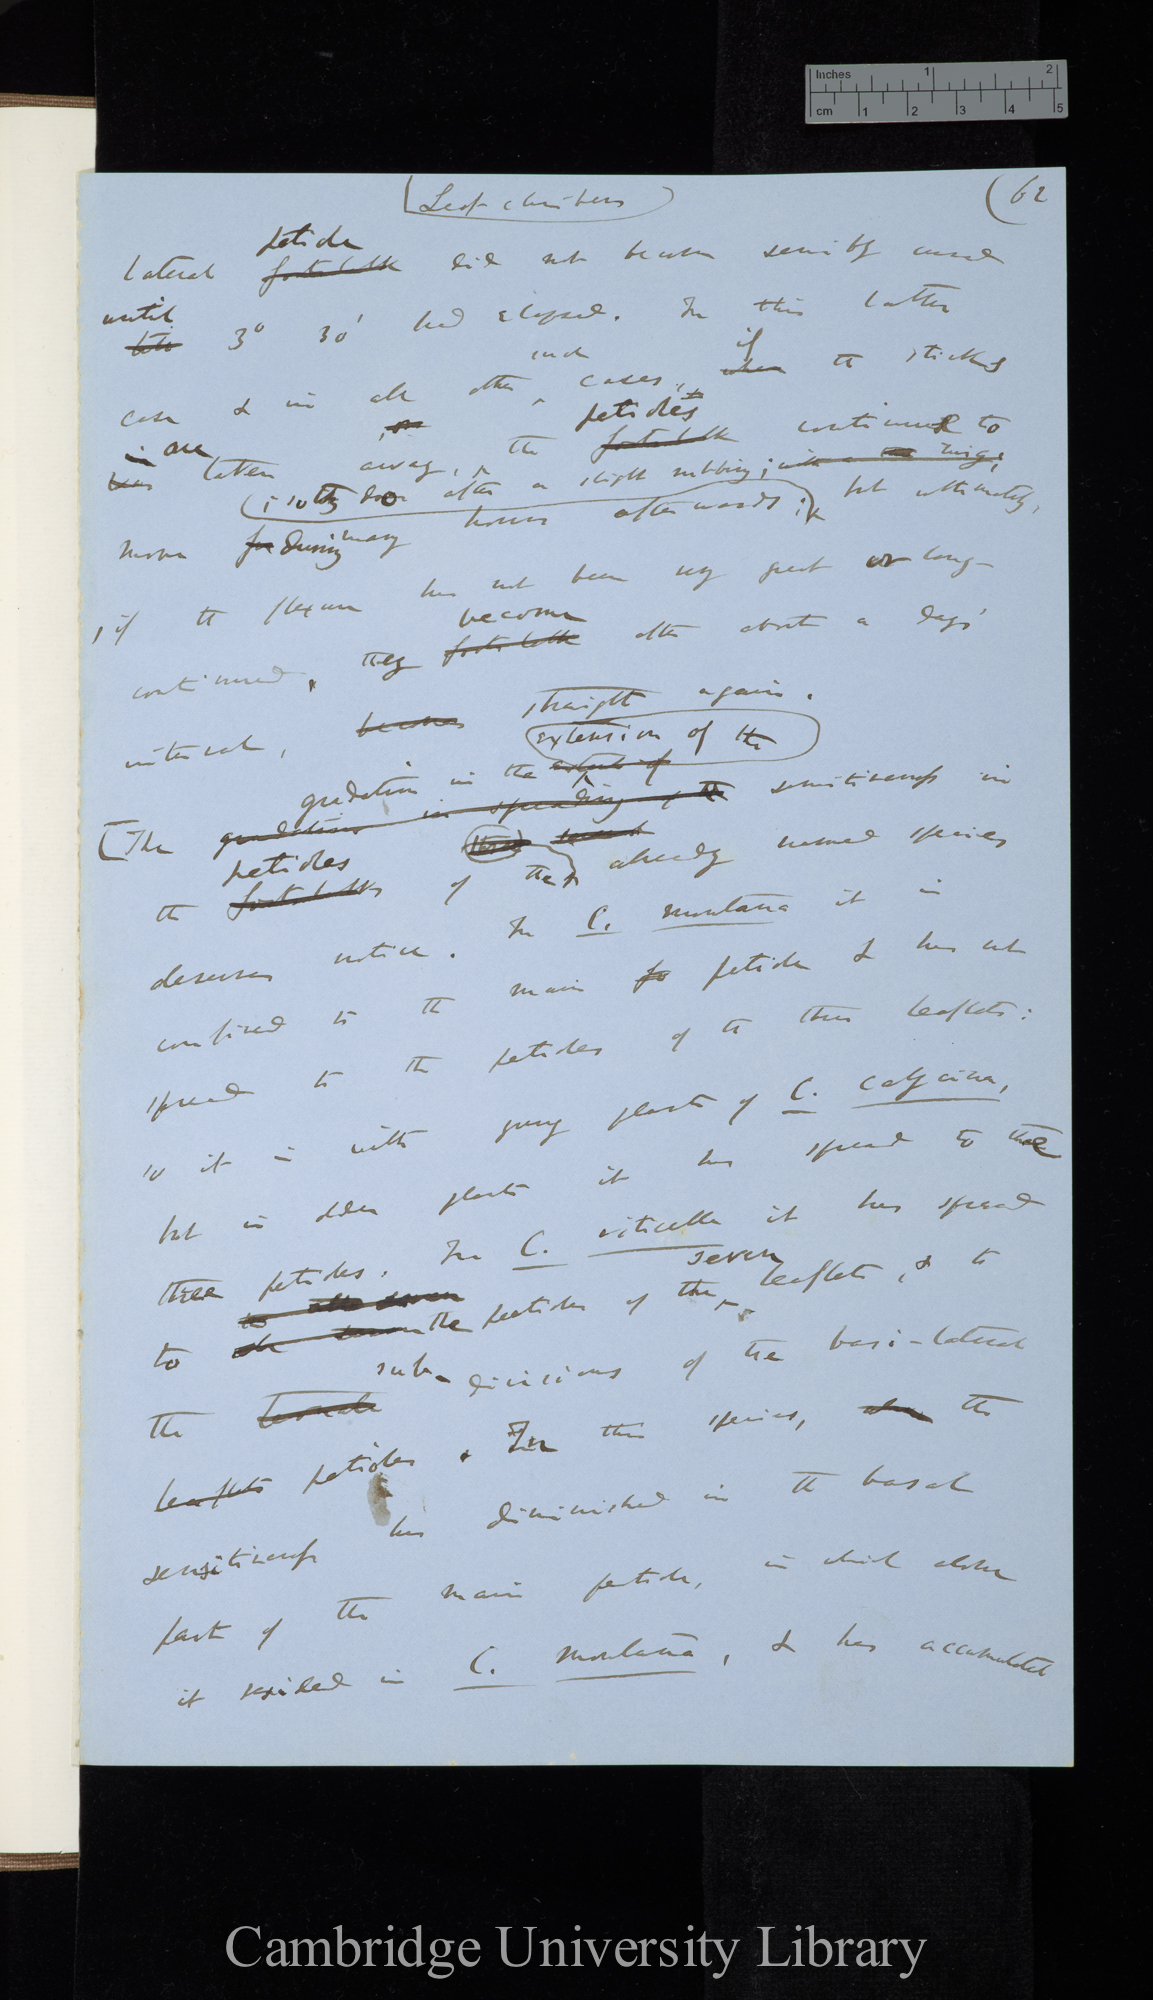 Inches 1 2
cm 1 2 3 4 5
Leaf climbers
(62
petiole
lateral footstalk did not become sensibly curved
until
till 3° 30' had elapsed. In this latter
such if
case & in all other cases, when the stick
is are petioles
was taken away, the footstalk continued to
; so they do after a slight rubbing;
move for during many hours afterwards; but ultimately,
, if the flexure has not been very great or long-
become
continued, they footstalk after about a days'
interval, becomes straight again.
extension of the
gradation in the extent of
[The gradation in spreading of the sensitiveness in
petioles
the footstalks of the already named species
deserves notice. In C. montana it is
confined to the main petiole & has not
spread to the petioles of the three leaflets:
so it is with young plants of C. calycina,
but in older plants it has spread to the
three petioles. In C. viticella it has spread
seven
to the petioles of the leaflets, & to
sub-divisions of the basi-lateral
the
leaflets petioles. In this species, the
sensitiveness has diminished in the basal
part of the main petiole, in which alone
it resided in C. montana, & has accumulated
Cambridge University Library